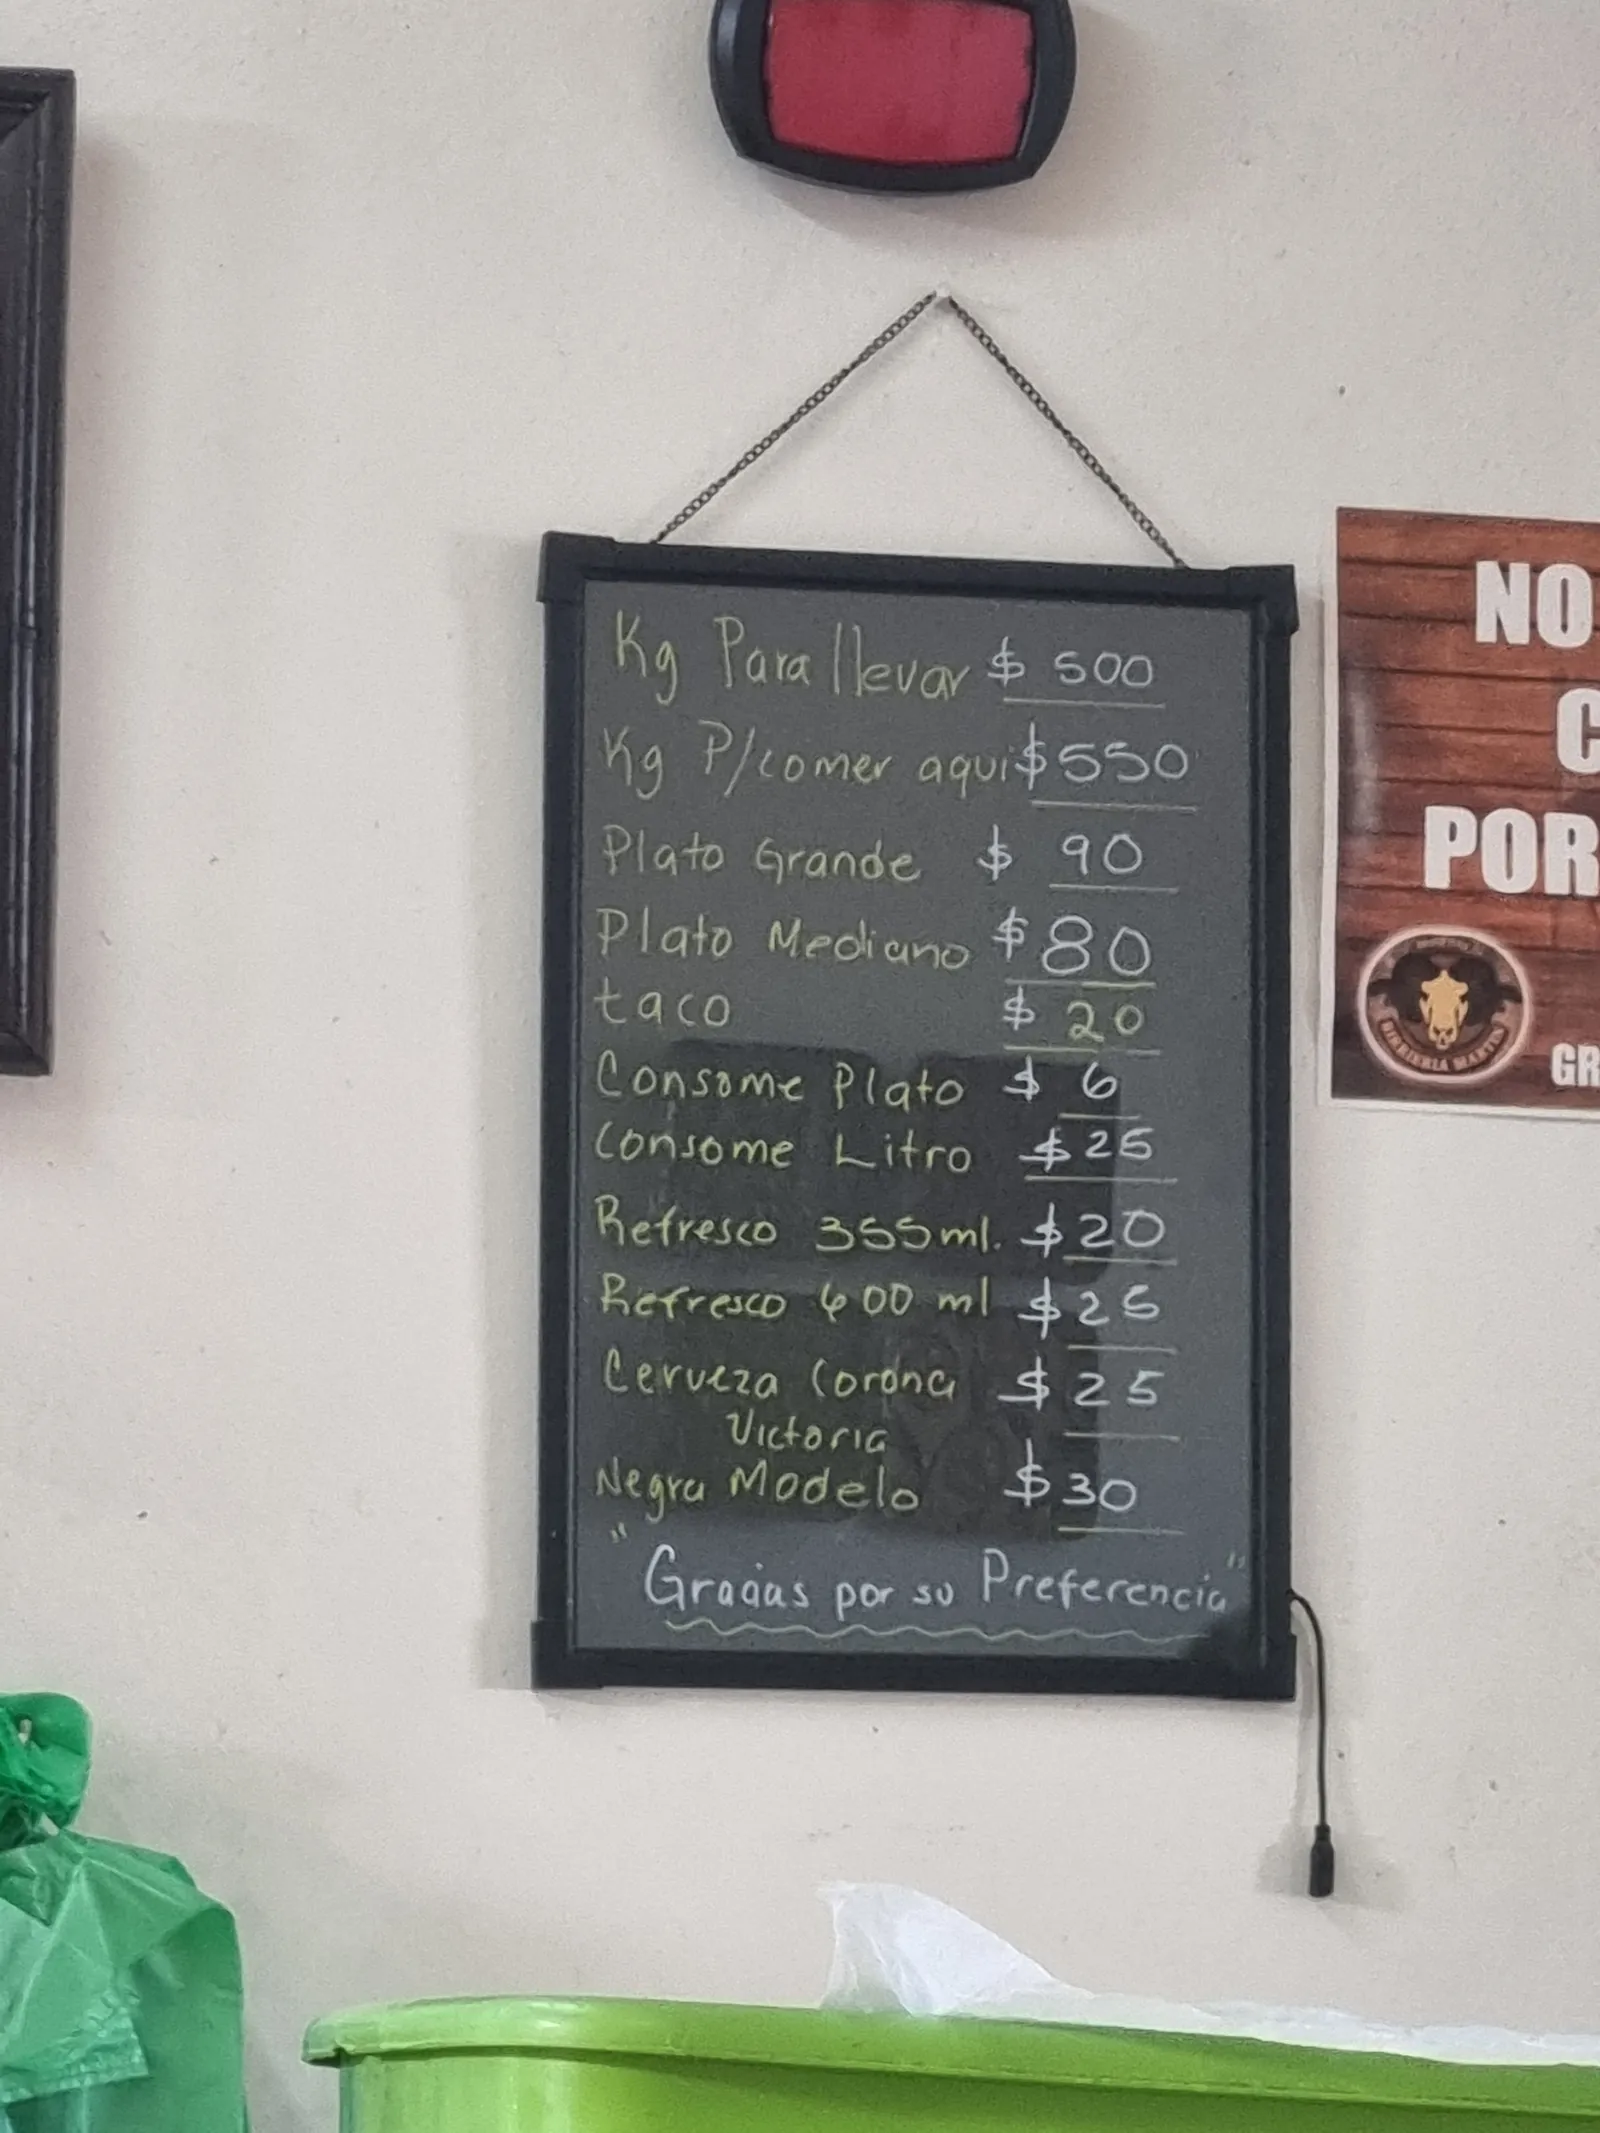 Kg Para llevar $ 500
Kg P/comer aqui $550
Plato Grande $ 90
Plato Mediano $ 80
taco $ 20
Consome Plato $ 6
Consome Litro $ 25
Refresco 355 ml. $ 20
Refresco 600 ml $ 25
Cerveza Corona $ 25
Victoria
Negra Modelo $ 30
"Gracias por su Preferencia"
NO
C
POR
GR
BIRRIERIA